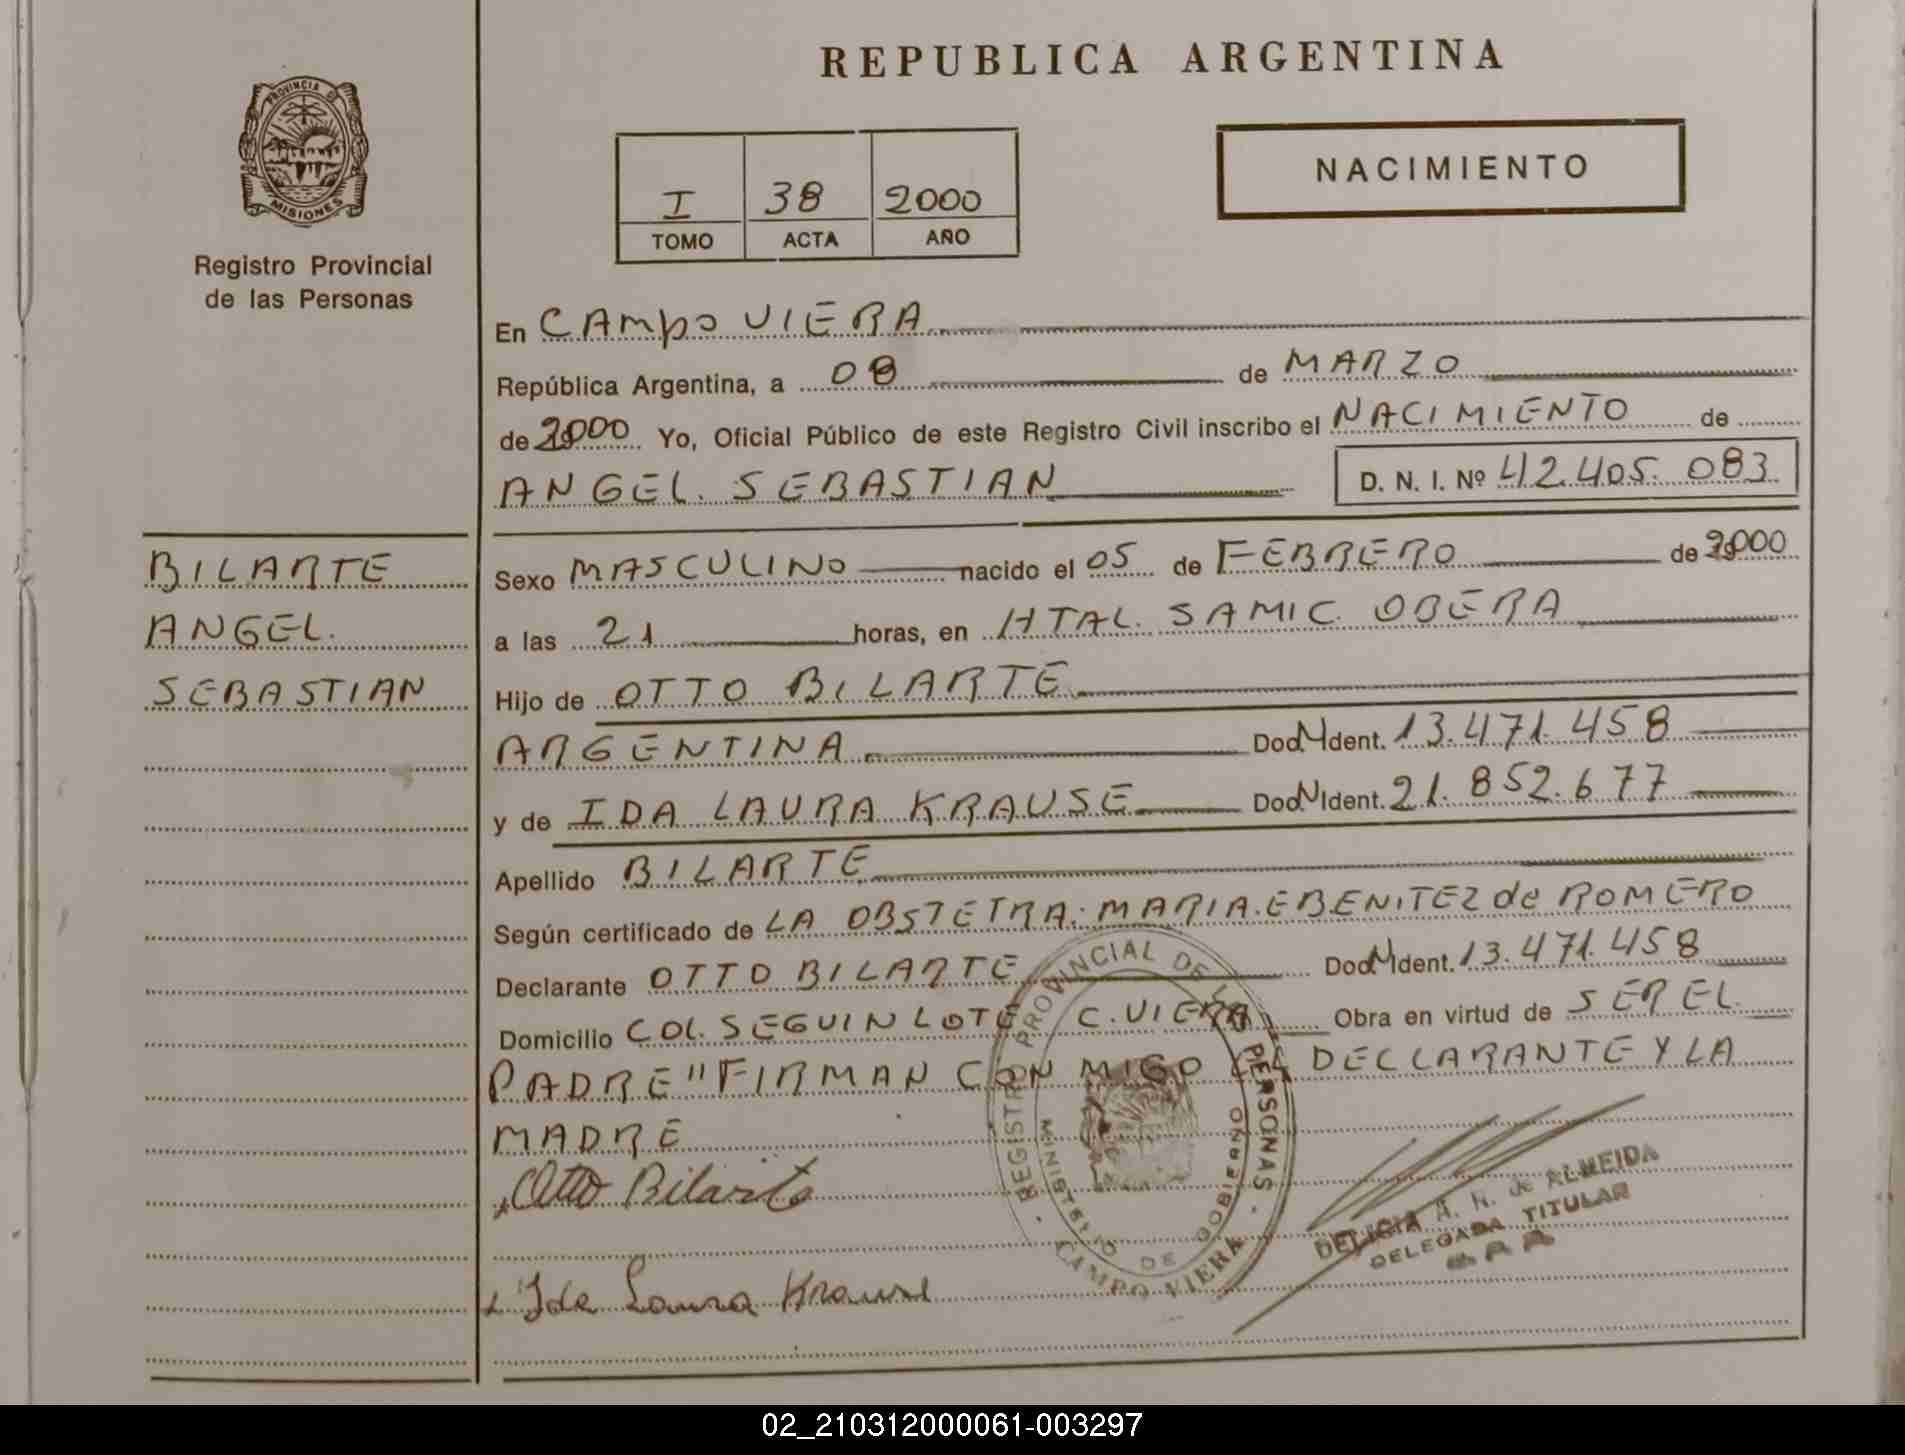 REPUBLICA ARGENTINA
PROVINCIA DE
MISIONES
Registro Provincial
de las Personas
I 38 2000
TOMO ACTA AÑO
NACIMIENTO
En CAMPO VIERA
República Argentina, a 08 de MARZO
de 2000 Yo, Oficial Público de este Registro Civil inscribo el NACIMIENTO de
ANGEL. SEBASTIAN D. N. I. Nº 42.405.083
BILARTE
ANGEL.
SEBASTIAN
Sexo MASCULINO nacido el 05 de FEBRERO de 2000
a las 21 horas, en HTAL. SAMIC. OBERA
Hijo de OTTO BILARTE
ARGENTINA Doc. Ident. 13.471.458
y de IDA LAURA KRAUSE Doc. Ident. 21.852.677
Apellido BILARTE
Según certificado de LA OBSTETRA: MARIA.E.BENITEZ de ROMERO
Declarante OTTO BILARTE Doc. Ident. 13.471.458
Domicilio COL. SEGUIN LOTE C. VIERA Obra en virtud de SER EL
PADRE "FIRMAN CON MIGO EL DECLARANTE Y LA
MADRE
Otto Bilarte
Ida Laura Krause
REGISTRO PROVINCIAL DE LAS PERSONAS
MINISTERIO DE GOBIERNO
CAMPO VIERA
DELICIA A. N. de ALMEIDA
DELEGADA TITULAR
02_210312000061-003297